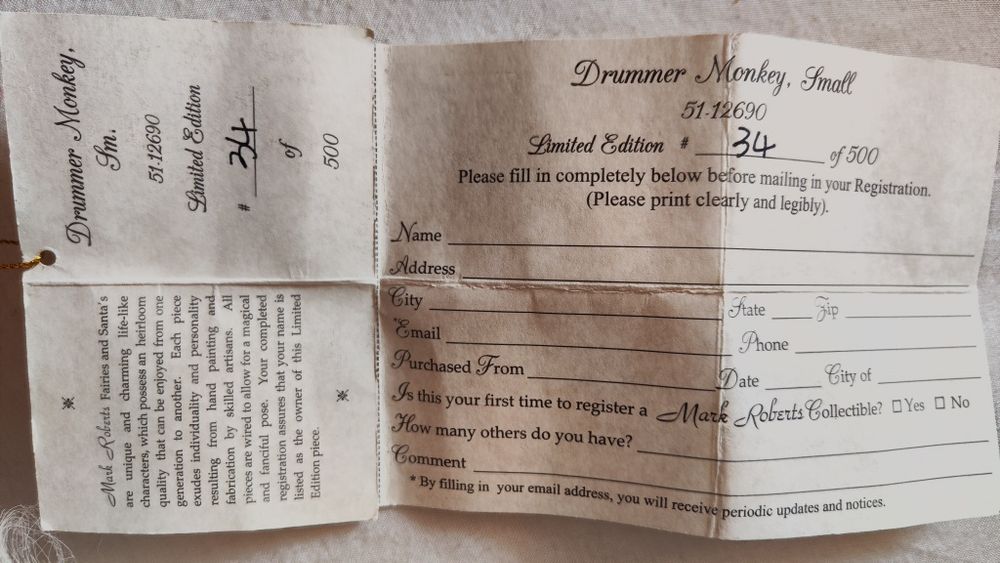 Drummer Monkey,
Sm.
51-12690
Limited Edition
# 34
of
500
Mark Roberts Fairies and Santa's
are unique and charming life-like
characters, which possess an heirloom
quality that can be enjoyed from one
generation to another. Each piece
exudes individuality and personality
resulting from hand painting and
fabrication by skilled artisans. All
pieces are wired to allow for a magical
and fanciful pose. Your completed
registration assures that your name is
listed as the owner of this Limited
Edition piece.
Drummer Monkey, Small
51-12690
Limited Edition # 34 of 500
Please fill in completely below before mailing in your Registration.
(Please print clearly and legibly).
Name
Address
City State Zip
*Email Phone
Purchased From Date City of
Is this your first time to register a Mark Roberts Collectible? ☐ Yes ☐ No
How many others do you have?
Comment
* By filling in your email address, you will receive periodic updates and notices.